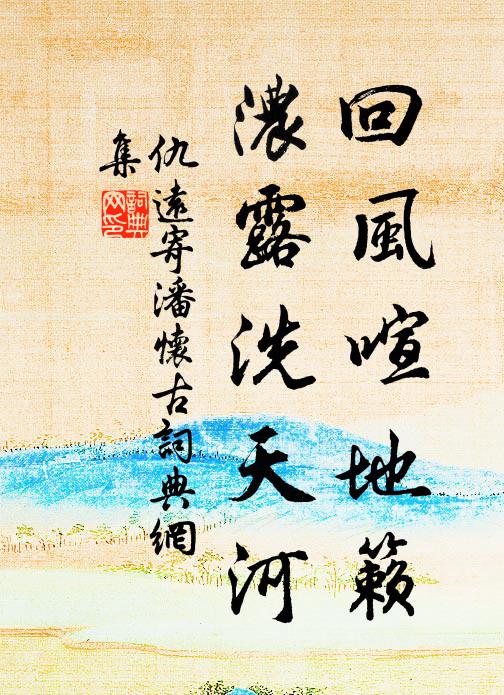 回風喧地籟
濃露洗天河
仇遠寄潘懷古詞典網
集
詞典
网印